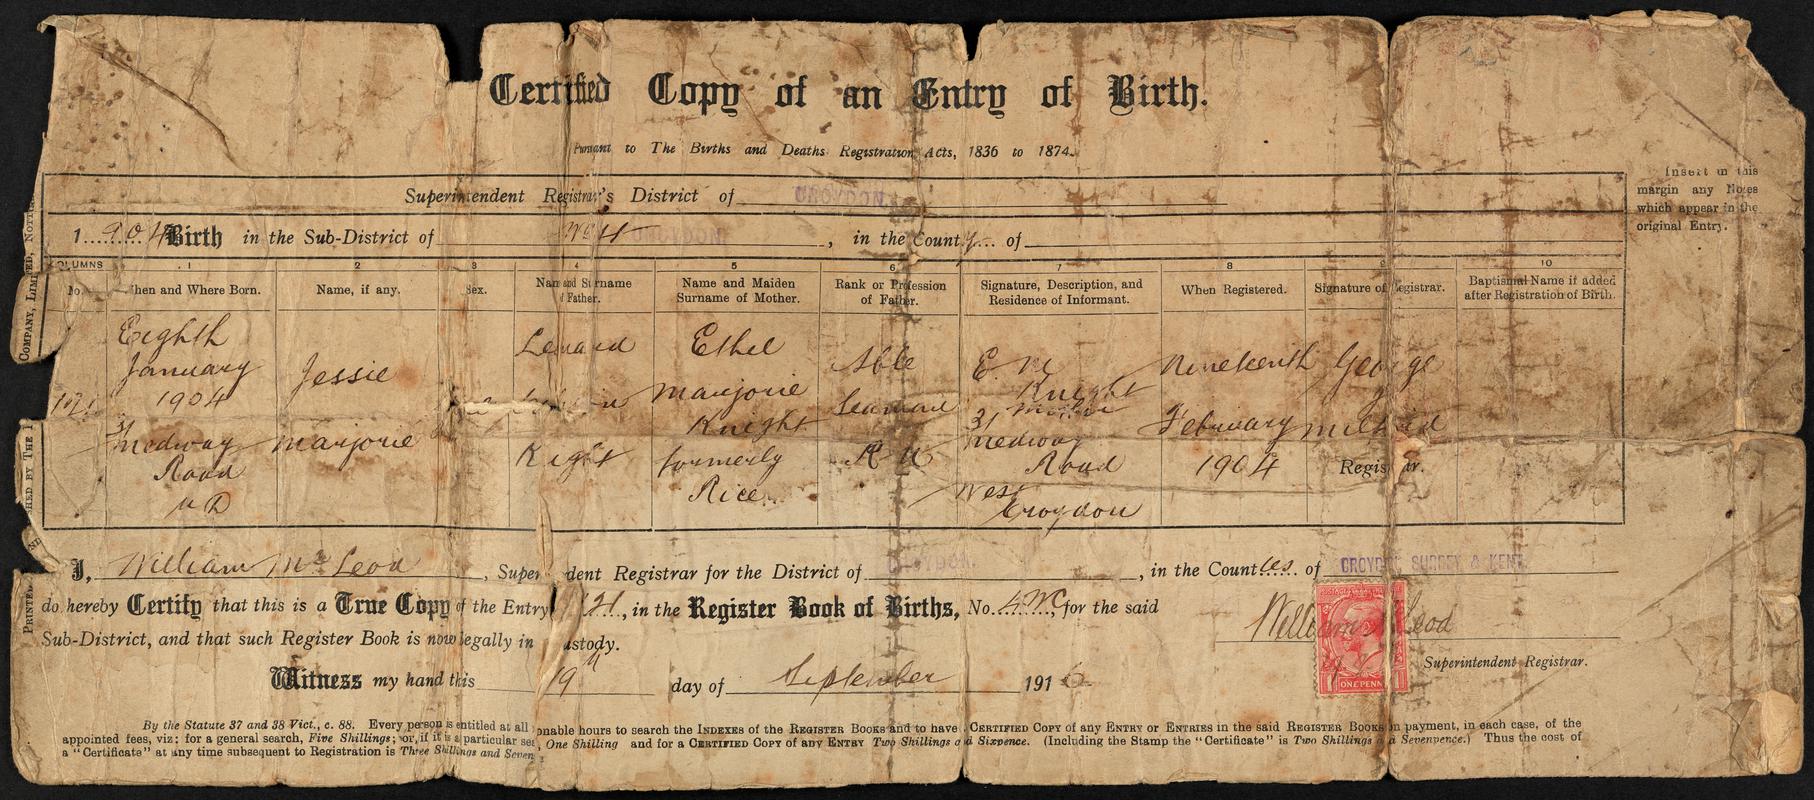 Certified Copy of an Entry of Birth.
Pursuant to The Births and Deaths Registration Acts, 1836 to 1874.
Superintendent Registrar's District of CROYDON.
1904 Birth in the Sub-District of CROYDON. , in the County of
Insert in this
margin any Notes
which appear in the
original Entry.
COLUMNS 1 2 3 4 5 6 7 8 9 10
No. When and Where Born. Name, if any. Sex. Name and Surname of Father. Name and Maiden Surname of Mother. Rank or Profession of Father. Signature, Description, and Residence of Informant. When Registered. Signature of Registrar. Baptismal Name if added after Registration of Birth.
121
Eighth
January
1904
31
Medway
Road
U D
Jessie
Marjorie
Leonard
Knight
Ethel
Marjorie
Knight
formerly
Rice
Able
Seaman
R N
E M
Knight
Mother
31
Medway
Road
West
Croydon
Nineteenth
February
1904
George
Millard
Registrar.
I, William McLeod, Superintendent Registrar for the District of CROYDON. , in the Counties of CROYDON SURREY & KENT
do hereby Certify that this is a True Copy of the Entry 121, in the Register Book of Births, No. 4 WC, for the said
Sub-District, and that such Register Book is now legally in custody.
William McLeod
Superintendent Registrar.
ONE PENNY
Witness my hand this 19th day of September 1916
By the Statute 37 and 38 Vict., c. 88. Every person is entitled at all onable hours to search the INDEXES of the REGISTER BOOKS and to have CERTIFIED COPY of any ENTRY or ENTRIES in the said REGISTER BOOKS on payment, in each case, of the
appointed fees, viz: for a general search, Five Shillings; or, if it is a particular sea, One Shilling and for a CERTIFIED COPY of any ENTRY Two Shillings and Sixpence. (Including the Stamp the "Certificate" is Two Shillings and Sevenpence.) Thus the cost of
a "Certificate" at any time subsequent to Registration is Three Shillings and Seven